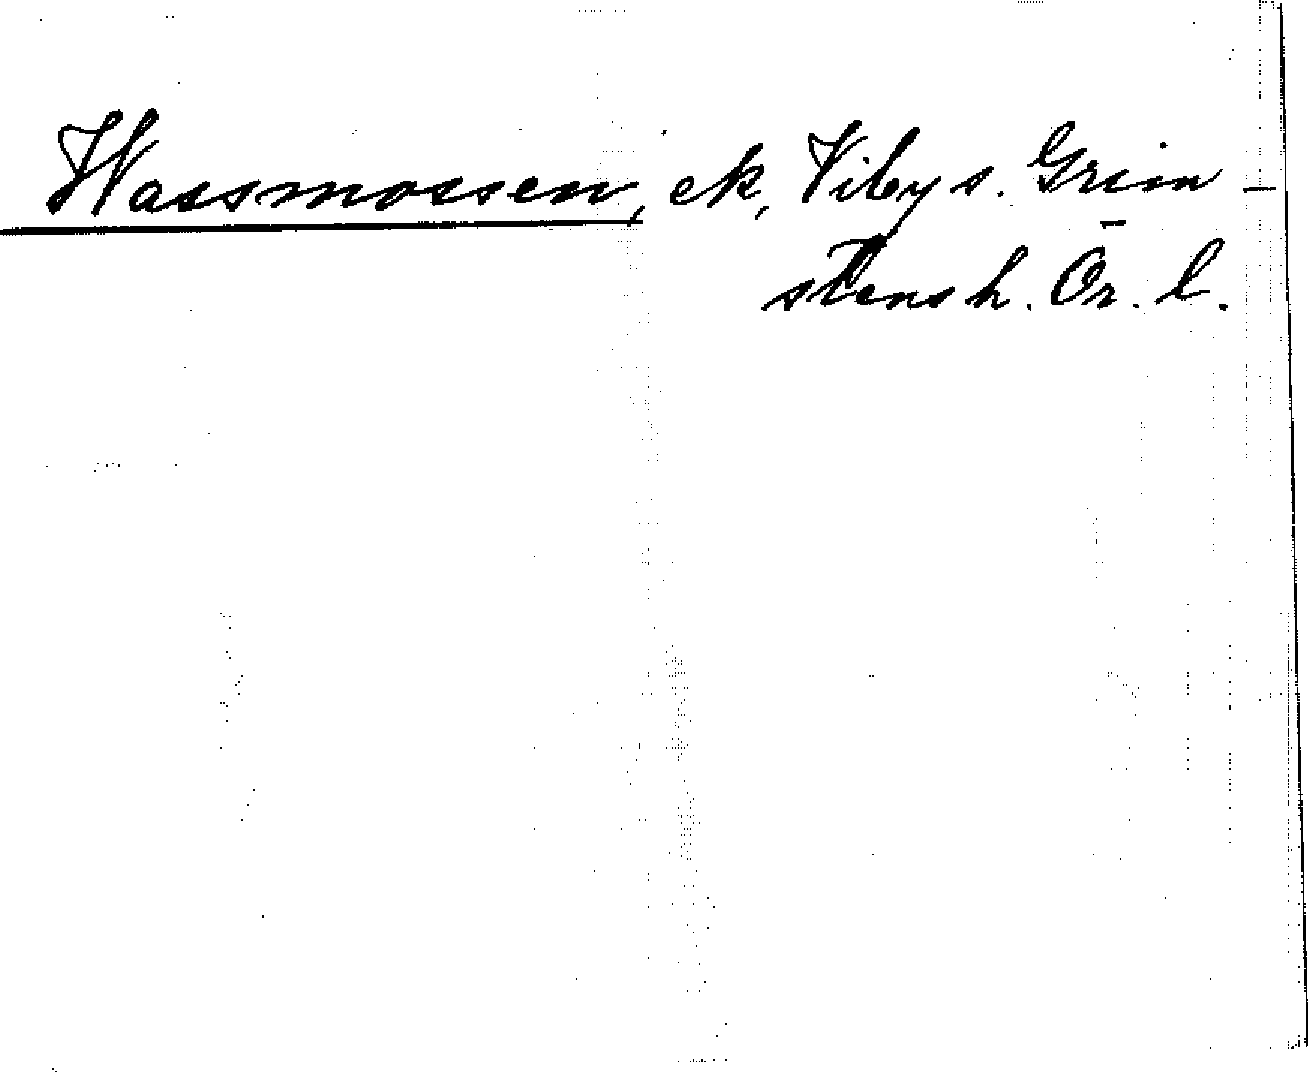 Hassmossen, ek, Viby s. Grim-
stens h. Ör. l.